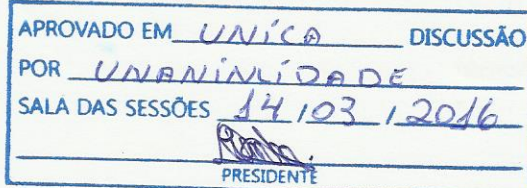 APROVADO EM UNíCA DISCUSSÃO
POR UNANIMIDADE
SALA DAS SESSÕES 14/03/2016
PRESIDENTE